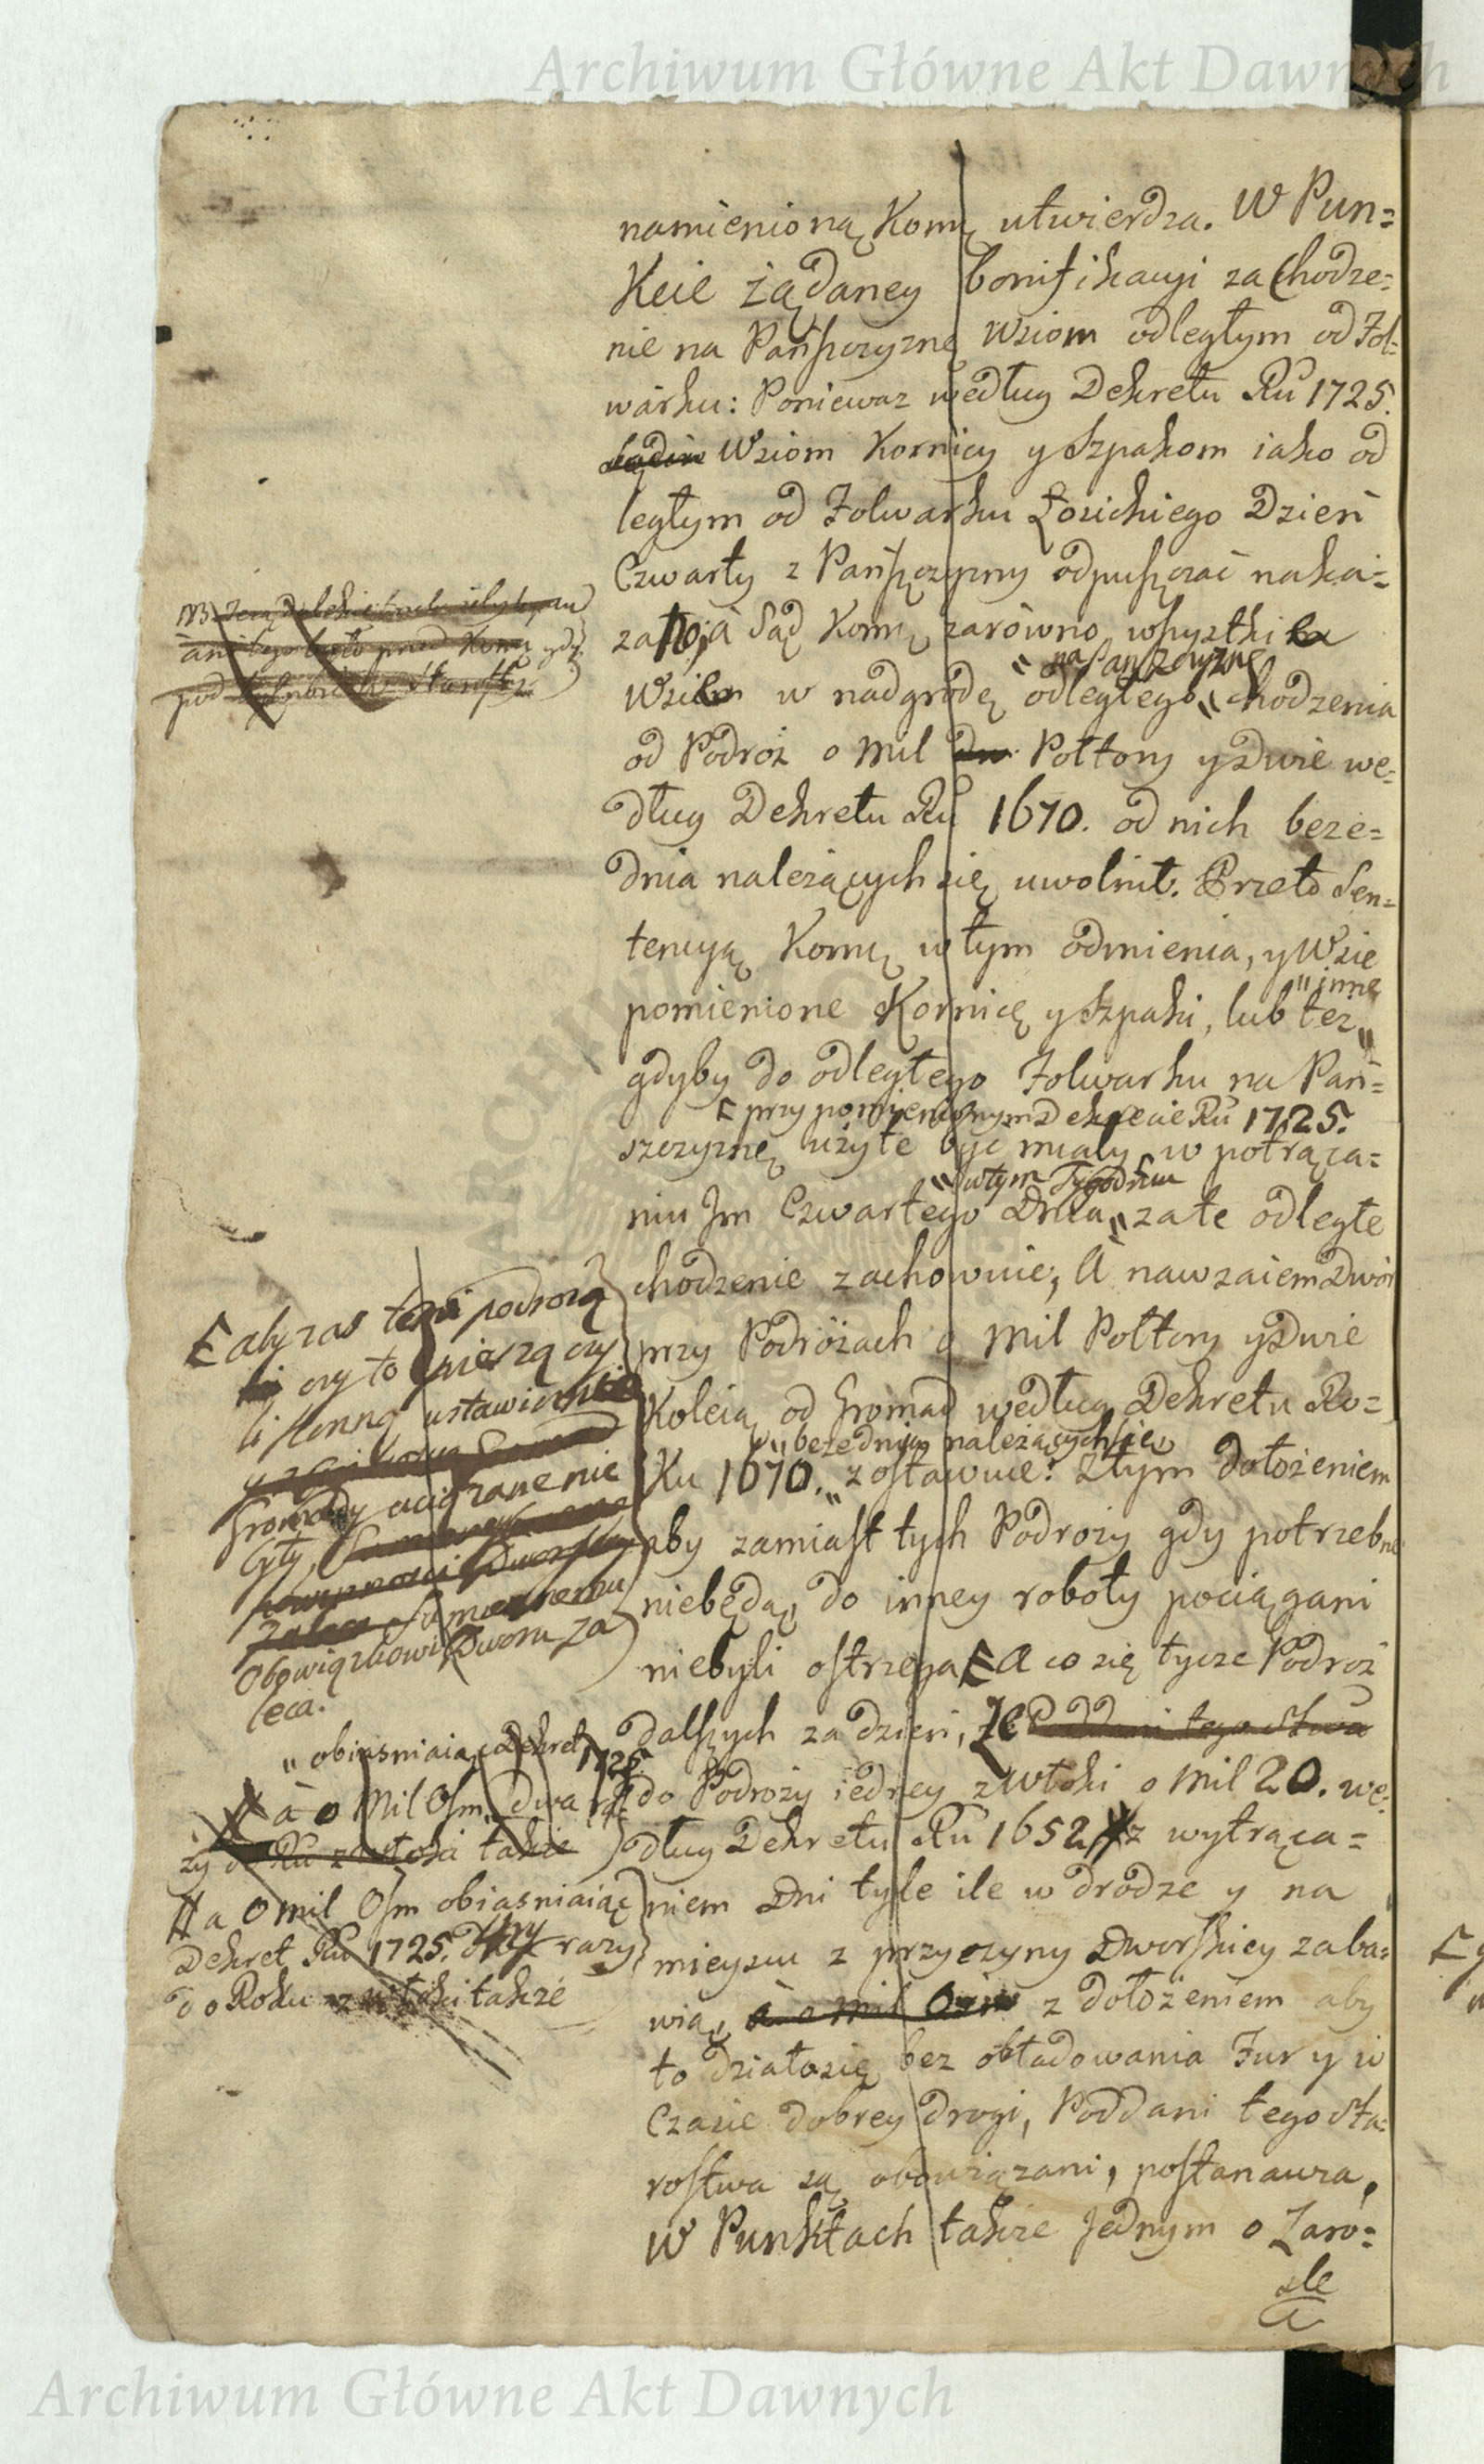 Archiwum Główne Akt Dawnych
namienioną Kommę utwierdza. W Pun=
kcie żądaney bonifikacyi za Chodze=
nie na Pańszczyznę Wsiom odległym od Fol=
warku: Poniewaz według Dekretu Ru 1725.
Wsiom Kornicy y Szpakom iako od
ległym od Folwarku Łosickiego Dzień
Czwarty z Pańszczyzny odpuszczać naka=
zano, á Sąd Kommę zarówno wszystkie
" na Pańszczyznę
Wsie w nadgrodę odległego " chodzenia
od Podroż o Mil Połtory y Dwie we=
dług Dekretu Ru 1670. od nich beze=
dnia należących się uwolnił. Przeto Sen=
tencyą Kommę w tym odmienia, y Wsie
" inne
pomienione Kornicę y Szpaki, lub też "
gdyby do odległego Folwarku na Pań=
przy pomienionym Dekrecie Ru 1725.
szczyznę użyte być miały w potrąca=
" w tym Tygodniu
niu Im Czwartego Dnia " za te odległe
chodzenie zachowuie, A nawzaiem Dwór
przy Podróżach o Mil Połtory y Dwie
Koleią od Gromad według Dekretu Ro=
" bezednia należących się
ku 1670. " zostawuie: Z tym dołożeniem
aby zamiast tych Podroży gdy potrzebne
niebędą, do inney roboty pociągani
niebyli ostrzega A co się tycze Podroż
dalszych za dzień, że Poddani tego Stwa
do Podroży iedney z Włoki o Mil 20. we=
dług Dekretu Ru 1652 z wytrąca=
niem Dni tyle ile w drodze y na
mieyscu z przyczyny Dworskiey zaba=
wią, á o Mil Osm z dołożeniem aby
to działo się bez obładowania Fur y w
Czasie dobrey drogi, Poddani tego Sta=
rostwa są obowiązani, postanawia,
W Punktach także Jednym o Zaro=
śle
aby zas temi podrożą
czy to pieszą czy
li konną ustawicznie
Gromady uciążane nie
były,
Obowiązkowi Dworu za
leca.
" obiasniaiąc Dekret 1725.
á o Mil Osm " dwa ra
ży do Ru z włoki także
a o Mil Osm obiasniaiąc
Dekret Ru 1725. trzy razy
do Roku z włoki także
Archiwum Główne Akt Dawnych